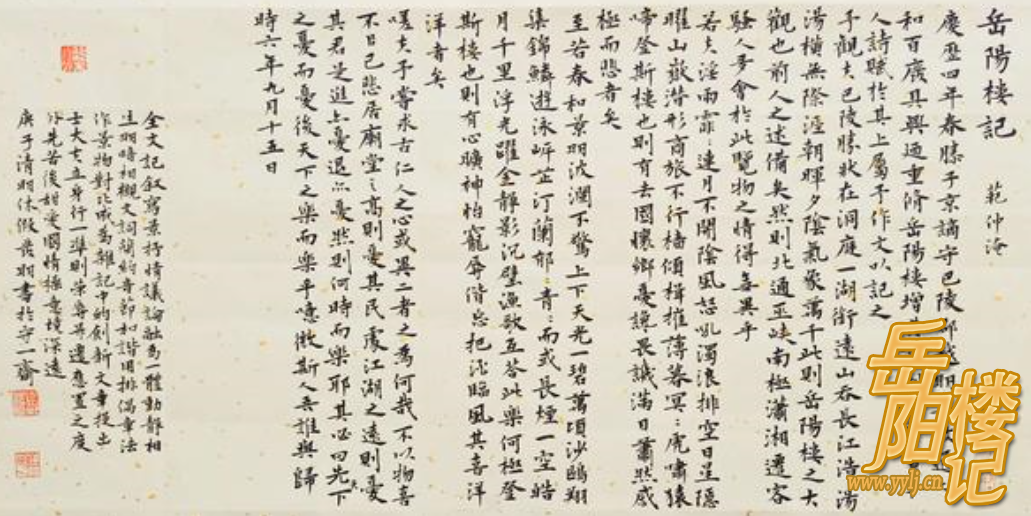 岳陽樓記 范仲淹
慶歷四年春滕子京謫守巴陵郡越明年政通
和百廢具興迺重脩岳陽樓增其
人詩賦於其上屬予作文以記之
予觀夫巴陵勝狀在洞庭一湖銜遠山吞長江浩浩湯
湯橫無際涯朝暉夕陰氣象萬千此則岳陽樓之大
觀也前人之述備矣然則北通巫峽南極瀟湘遷客
騷人多會於此覽物之情得無異乎
若夫淫雨霏〻連月不開陰風怒吼濁浪排空日星隱
曜山嶽潛形商旅不行檣傾楫摧薄暮冥〻虎嘯猿
啼登斯樓也則有去國懷鄉憂讒畏譏滿目蕭然感
極而悲者矣
至若春和景明波瀾不驚上下天光一碧萬頃沙鷗翔
集錦鱗遊泳岸芷汀蘭郁〻青〻而或長煙一空皓
月千里浮光躍金靜影沉璧漁歌互答此樂何極登
斯樓也則有心曠神怡寵辱偕忘把酒臨風其喜洋
洋者矣
嗟夫予嘗求古仁人之心或異二者之為何哉不以物喜
不以己悲居廟堂之高則憂其民處江湖之遠則憂
其君是進亦憂退亦憂然則何時而樂耶其必曰先天下
之憂而憂後天下之樂而樂乎噫微斯人吾誰與歸
時六年九月十五日
全文記叙寫景抒情議論融為一體動靜相
生明暗相襯文詞簡約音節和諧用排偶章法
作景物對比成為雜記中的創新文章提出
士大夫立身行一準則榮辱毀譽置之度
外先苦後甜愛國情懷意境深遠
庚子清明休假晨明書於守一齋
岳陽樓记
www.yylj.cn